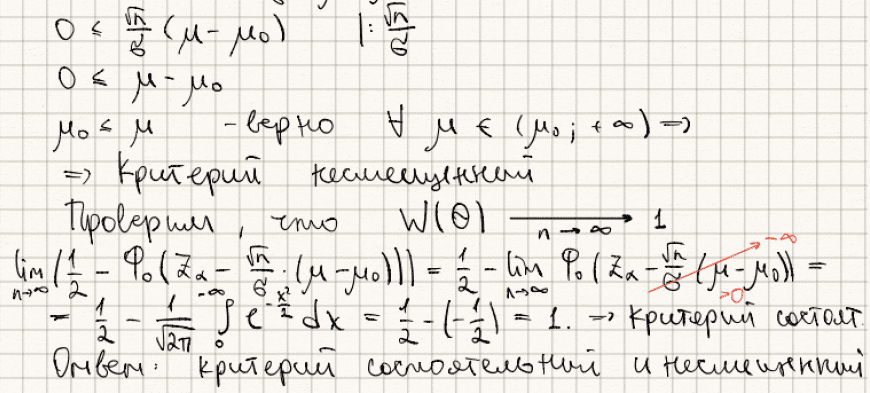 0 ≤ √n/σ (μ − μ₀) |: √n/σ
0 ≤ μ − μ₀
μ₀ ≤ μ – верно ∀ μ ∈ (μ₀; +∞) =>
=> Критерий несмещенный
Проверим, что W(Θ) ⟶ 1 n→∞
lim n→∞ (1/2 − Φ₀(z_α − √n/σ · (μ − μ₀))) = 1/2 − lim n→∞ Φ₀(z_α − √n/σ (μ − μ₀)) = →−∞ >0
= 1/2 − 1/√2π ∫₀^(−∞) e^(−x²/2) dx = 1/2 − (−1/2) = 1. => критерий состоят.
Ответ: критерий состоятельный и несмещенный